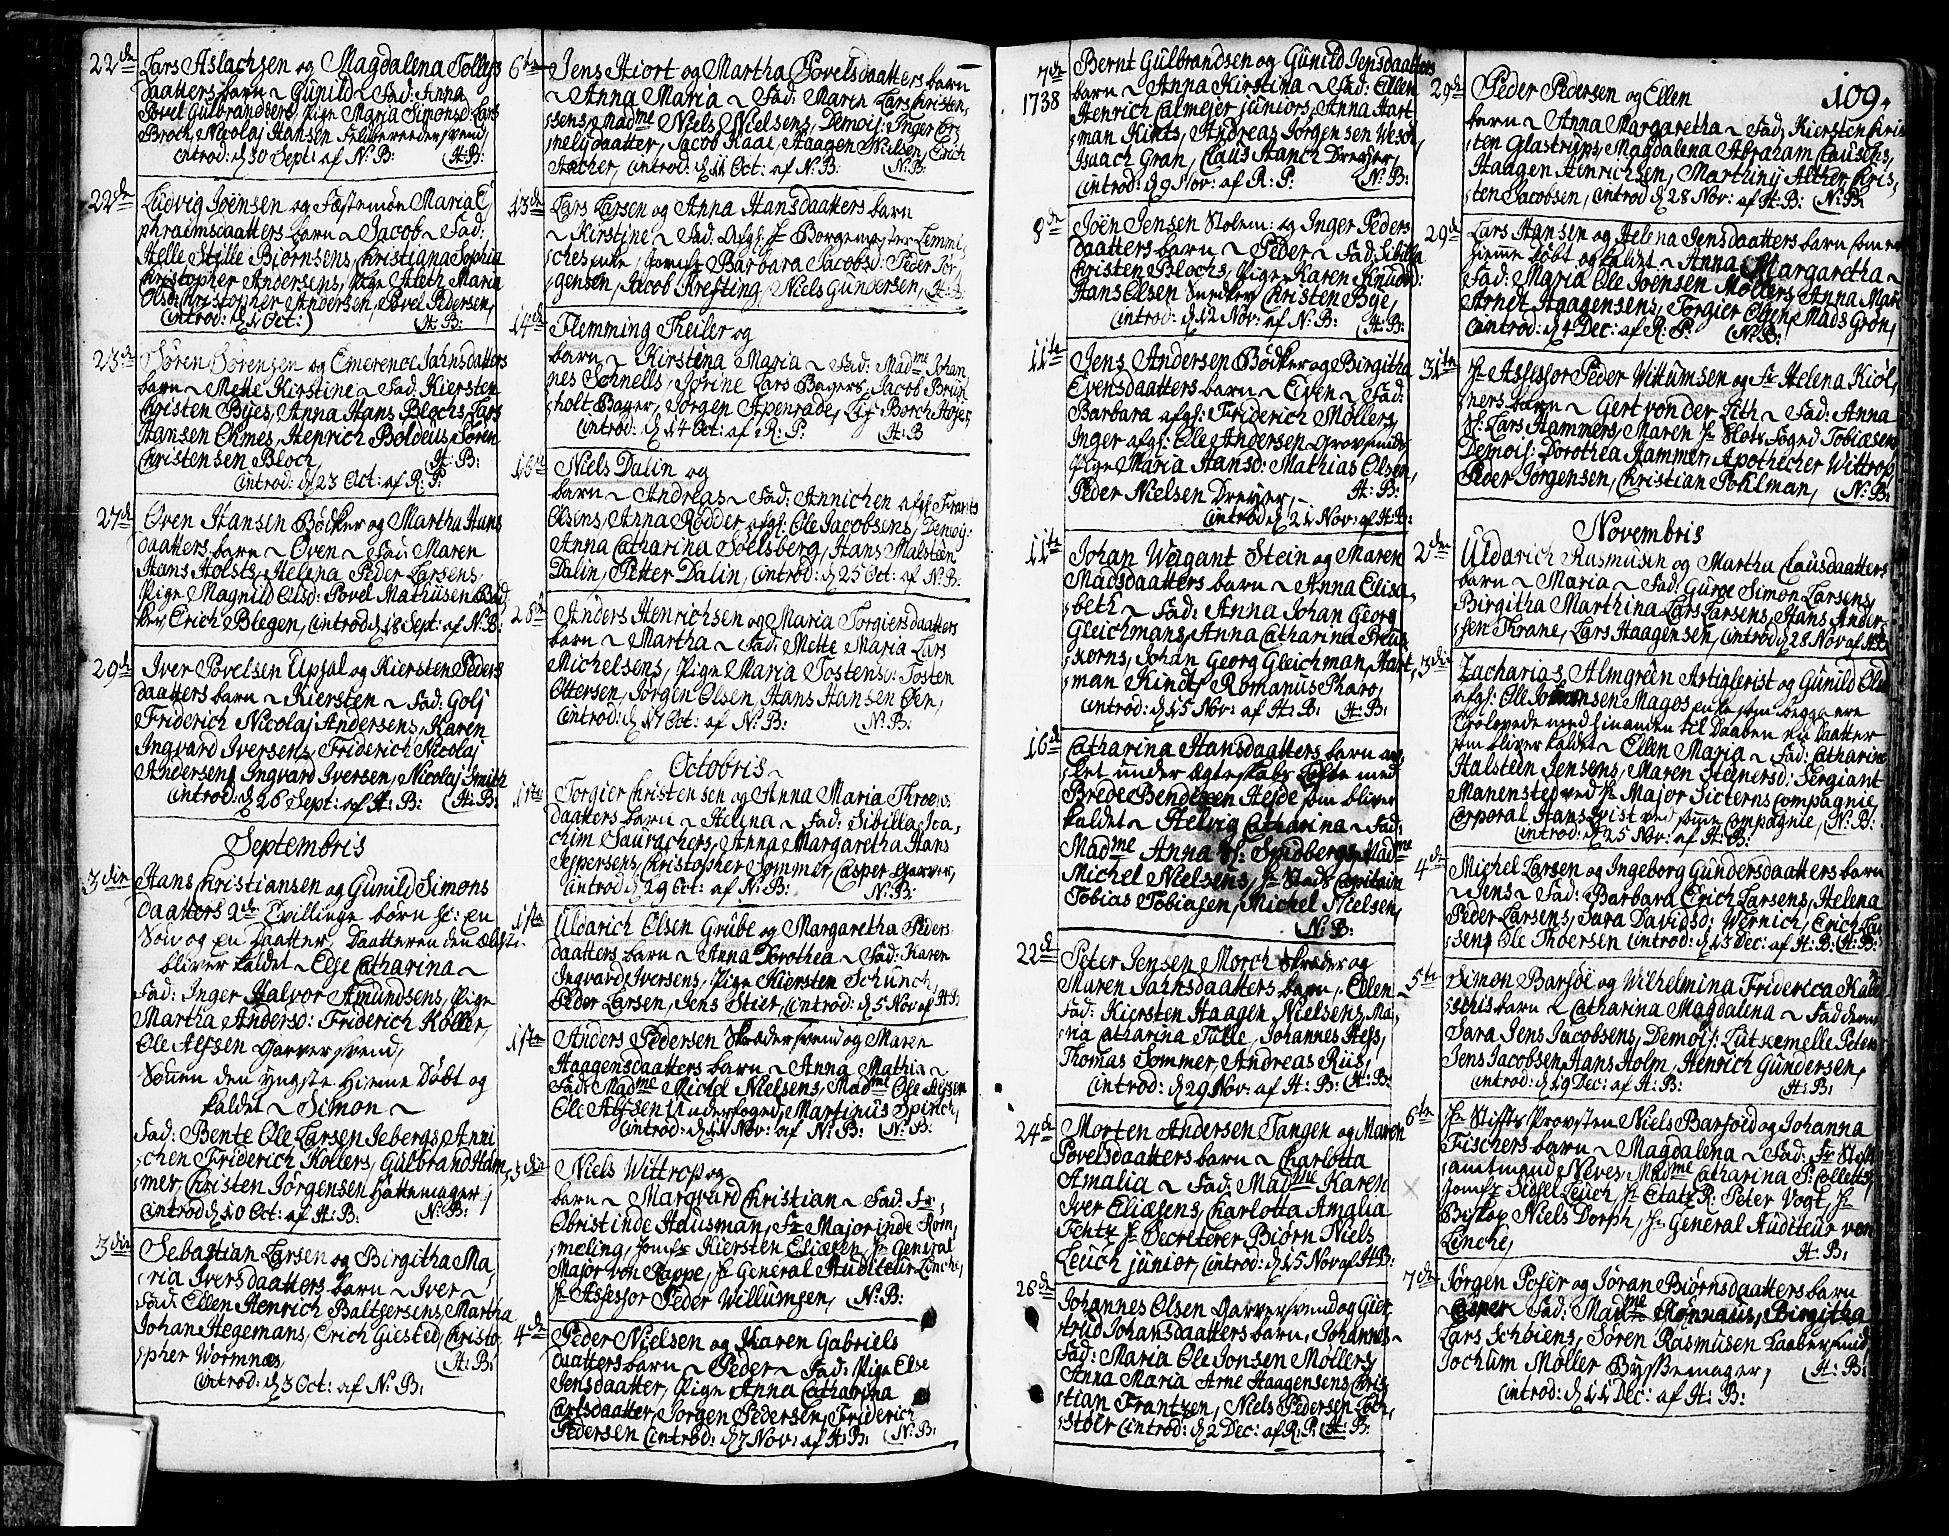 22de Lars Aslachsen og Magdalena Tollefs
daatters barn ~ Gunild ~ Fad: Anna
Povel Gulbrandsens, Pige Maria Simonsd: Lars
Broch, Nicolaj Hansen
introd: d 30 Sept: af N: B: (H: B:
22de Ludvig Joënsen og Fæstemøe Maria E¦
phraimsdaatters barn ~ Jacob ~ Fad:
Helle Stille Biørnsens, Christiana Sophia
Christopher Andersens, Pige Aleth Maria
Olsd: Christopher Andersen, Povel Pedersen,
(introd: d 1 Oct:) (H: B:
23de Søren Sørensen og Emerence Jahnsdatters
barn ~ Mette Kirstine ~ Fad: Kiersten
Christen Byes, Anna Hans Blochs, Lars
Hansen Ohmes, Henrich Boldeus, Søren
Christensen Bloch, (H: B:
introd: d 23 Oct: af R: P:
27de Oven Hansen Bødker og Martha Hans
daatters barn ~ Oven ~ Fad: Maren
Hans Holsts, Helena Peder Larsens,
Pige Magnild Olsd: Povel Mathiesen Bød
ker, Erich Blegen, introd: d 18 Sept: af N: B:
29de Iver Povelsen Upsal og Kiersten Peders
daatters barn ~ Kiersten ~ Fad: Golj
Friderich Nicolaj Andersens, Karen
Ingvard Iversens, Friderich Nicolaj
Andersen, Ingvard Iversen, Nicolaj Smith
introd: d 26 Sept: af H: B: (H: B:
Septembris
3die Hans Christiansen og Gunild Simons
daatters 2de Tvillinge børn s: En
Søn og en Daatter, Daatteren den ældste
bliver kaldet ~ Edse Catharina ~
Fad: Inger Halvor Amundsens, Pige
Martha Andersd: Friderich Køller,
Ole Alfsen Garversvend,
Sønen den yngste Hiemme Døbt og
kaldet ~ Simon ~
Fad: Bente Ole Larsen Jebergs, Anni
chen Friderich Køllers, Gulbrand Ham¦
mer, Christen Jørgensen Hattemager,
introd: d 10 Oct: af H: B: (N: B:
3die Sebastian Larsen og Birgitha Ma¦
ria Iversdaatters barn ~ Iver ~
Fad: Ellen Henrich Baltzersens, Martha
Johan Hegemans, Erich Giested, Christo¦
pher Wormnæs, (H: B:
introd: d 3 Oct: af N: B:
6te Jens Hiort og Martha Povelsdaatters barn
~ Anna Maria ~ Fad: Maren Lars Christen¦
sens, Madme Niels Nielsens, Demois: Inger Cor¦
nelysdaatter, Jacob Kaae, Haagen Nielsen, Erich
Ancher, introd: d 11 Oct: af N: B: (N: B:
13de Lars Larsen og Anna Hansdaatters barn
~ Kirstine ~ Fad: Afg: Hr Borgemester Lemmi¦
ches enke, Jomfr Barbara Jacobsd: Peder Jør¦
gensen, Jacob Kresting, Niels Gundersen, (H: B:
14de Flemming Theiler og
barn ~ Kirstina Maria ~ Fad: Madme Johan
nes Schnells, Jorine Lars Bagers, Jacob Brun
holt Bager, Jørgen Apenrade, Borch Høyer
introd: d 14 Oct: af R: P: (H: B
16de Niels Dalin og
barn ~ Andreas ~ Fad: Annichen afgl: Frants
Olsens, Anna Rødder afgl: Ole Jacobsens, Demoi:
Anna Catharina Soelsberg, Hans Malstein
Dalin, Petter Dalin, introd: d 25 Oct: af N: B:
28de Anders Henrichsen og Maria Torgiersdaatters
barn ~ Martha ~ Fad: Mette Maria Lars
Michelsens, Pige Maria Tostensd: Tosten
Ottersen, Jørgen Olsen, Hans Hansen Øen,
introd: d 17 Oct: af N: B: (N: B:
Octobris ~
1ste Torgier Christensen og Anna Maria Throens
daatters barn ~ Helena ~ Fad: Sibilla Joa¦
chim Saurachers, Anna Margaretha Hans
Jespersens, Christopher Sommer, Casper Garver,
introd: d 29 Oct: af N: B: (N: B:
1ste Uldarich Olsen Grube og Margaretha Peders
daatters barn ~ Anna Dorothea ~ Fad: Karen
Ingvard Iversens, Pige Kiersten Schunch,
Peder Larsen, Jens Stier, introd: d 5 Nov: af H: B:
1ste Anders Pedersen Skrædersvend og Maren
Haagensdaatters barn ~ Anna Mathia ~
Fad: Madme Michel Nielsens, Madme Ole Alfsen
Ole Alfsen Underfoged, Martinus Spinch,
introd: d 11 Nov: af N: B: (N: B:
3die Niels Wittrop og
barn ~ Marqvard Christian ~ Fad: Fr¦
Obristinde Hausman, Fr Majorinde Rom¦
meling, Jomfr Kiersten Eliæsen, Hr General
Major von Rappe, Hr General Auditeur Linche,
Hr Assessor Peder Willumsen, (N: B:
4de Peder Nielsen og Karen Gabriels
daatters barn ~ Peder ~ Fad: Pige Else
Jensdaatter, Pige Anna Catharina
Carlsdaatter, Jørgen Pedersen, Friderich
Pedersen introd: d 7 Nov: af H: B: (N: B:
7de
1738
Bernt Gulbrandsen og Gunild Jensdaatters
barn ~ Anna Kirstina ~ Fad: Ellen
Henrich Calmejer juniors, Anna Hart
man Kints, Andreas Jørgensen Wesøe,
Isaach Gran, Claus Hanch Dreyer,
introd: d 9 Nov: af R: P: (N: B:
8de Joën Jensen Stolem: og Inger Peders
daatters barn ~ Peder ~ Fad: Sibilla
Christen Blochs, Pige Karen Knudsd:
Hans Olsen Snedker, Christen Bye,
introd: d 12 Nov: af N: B: (H: B:
11te Jens Andersen Bødker og Birgitha
Evensdaatters barn ~ Even ~ Fad:
Barbara afgl: Friderich Møllers,
Inger afgl: Ole Andersen Grovsmeds,
Pige Maria Hansd: Mathias Olsen,
Peder Nielsen Dreyer, ~ (H: B:
introd: d 21 Nov: af H: B:
11te Johan Weigant Stein og Maren
Madsdaatters barn ~ Anna Elisa¦
beth ~ Fad: Anna Johan Georg
Gleichmans, Anna Catharina Preus
korns, Johan Georg Gleichman, Hart¦
man Kindt, Romanus Pharo,
introd: d 15 Nov: af H: B: (H: B:
16de Catharina Hansdaatters barn av¦
let under Ægteskabs Løfte med
Brede Bendixen Hesde som bliver
kaldet ~ Helvig Catharina ~ Fad:
Madme Anna Sl: Sundbergs, Madme
Michel Nielsens, Hr Stads Capitain
Tobias Tobiasen, Michel Nielsen,
(N: B:
22de Peter Jensen Morch Skræder og
Maren Jahnsdaatters barn ~ Ellen ~
Fad: Kiersten Haagen Nielsens, Ma¦
ria Catharina Tulle, Johannes Hess,
Thomas Sommer, Andreas Rus,
introd: d 29 Nov: af H: B: (H: B:
24de Morten Andersen Tangen og Maren
Povelsdaatters barn ~ Charlotta
Amalia ~ Fad: Madme Karen
Iver Eliæsens, Charlotta Amalia
Fentz, Hr Secreterer Biørn Niels
Leuch junior, introd: d 15 Nov: af H: B:
26de Johannes Olsen Garversvend og Giet
trud Johansdaatters barn ~ Johannes ~
Fad: Maria Ole Jonsen Møllers,
Anna Maria Arne Haagensens, Chris
tian Frantzen, Niels Pedersen Loch¦
støer introd: d 2 Dec: af R: P: (H: B:
109.
29de Peder Pedersen og Ellen
barn ~ Anna Margaretha ~ Fad: Kiersten Kris
ten Glastrups, Magdalena Abraham Clausens,
Haagen Hinrichsen, Marthiny Alther, Chris¦
ten Jacobsen, introd: d 28 Nov: af H: B: (N: B:
29de Lars Hansen og Helena Jensdaatters barn som er
hiemme Døbt og kaldet ~ Anna Margaretha ~
Fad: Maria Ole Joensen Møllers, Anna Mar
Arnet Haagensens, Torgier Olsen, Mads Grøn,
introd: d 4 Dec: af R: P: (N: B:
31te Hr Assessor Peder Willumsen og Fr Helena Kiøl¦
ners barn ~ Gert von der Lith ~ Fad: Anna
Sl: Lars Hammers, Maren Hr Slots Foged Tobiæsens
Demois: Dorothea Hammer, Apothecher Wittrop,
Peder Jørgensen, Christian Pohlman, (N: B:
Novembris
2den Uldarich Rasmusen og Martha Clausdaatters
barn ~ Maria ~ Fad: Gurre Simon Larsens,
Birgitha Marthina Lars Larsens, Hans Ander¦
sen Thrane, Lars Haagensen, introd: d 28 Nov af H: B
3die Zacharias Almgrén Artiglerist og Gunild Olsd
afgl: Ole Johansen Magos enke som begge ere
Trolovede med hinanden til Daaben en Daatter
som bliver kaldet ~ Ellen Maria ~ Fad: Catharina
Halsteen Jensens, Maren Steenersd: Sergiant
Manensted ved Hr Major Sicterns Compagnie,
Corporal Hans Qvist ved same Compagnie, (N: B:
introd: d 25 Nov: af H: B:
4de Michel Larsen og Ingeborg Gundersdaatters barn
~ Jens ~ Fad: Barbara Erich Larsens, Helena
Peder Larsens, Sara Davidsd: Wernich, Erich Lar
sen, Ole Thoersen introd: d 13 Dec: af H: B: (H: B:
5te Simon Barfod og Wilhmina Friderica Kald
schis barn ~ Catharina Magdalena ~ Fad:
Sara Jens Jacobsens, Demois: Lutkemelle Peters
Jens Jacobsen, Hans Holm, Henrich Gundersen,
introd: d 19 Dec: af H: B: (H: B:
6te Hr StiftsProvsten Niels Barføed og Johanna
Fischers barn ~ Magdalena ~ Fad: Fr Stift
amtmand Neves, Madme Catharina P: Colletts,
Jomfr Sidsel Leuch, Hr Etatz R: Peter Vogt, Hr
Biskop Niels Dorph, Hr General Auditeur von
Linche, (H: B:
7de Jørgen Poser og Jøran Biørnsdaatters barn
~ Casper ~ Fad: Madme Rønnaus, Birgitha
Lars Schbiens, Søren Rasmusen Daabersvend
Jochum Møller Bysemager, (H: B:
introd: d 11 Dec: af H: B: